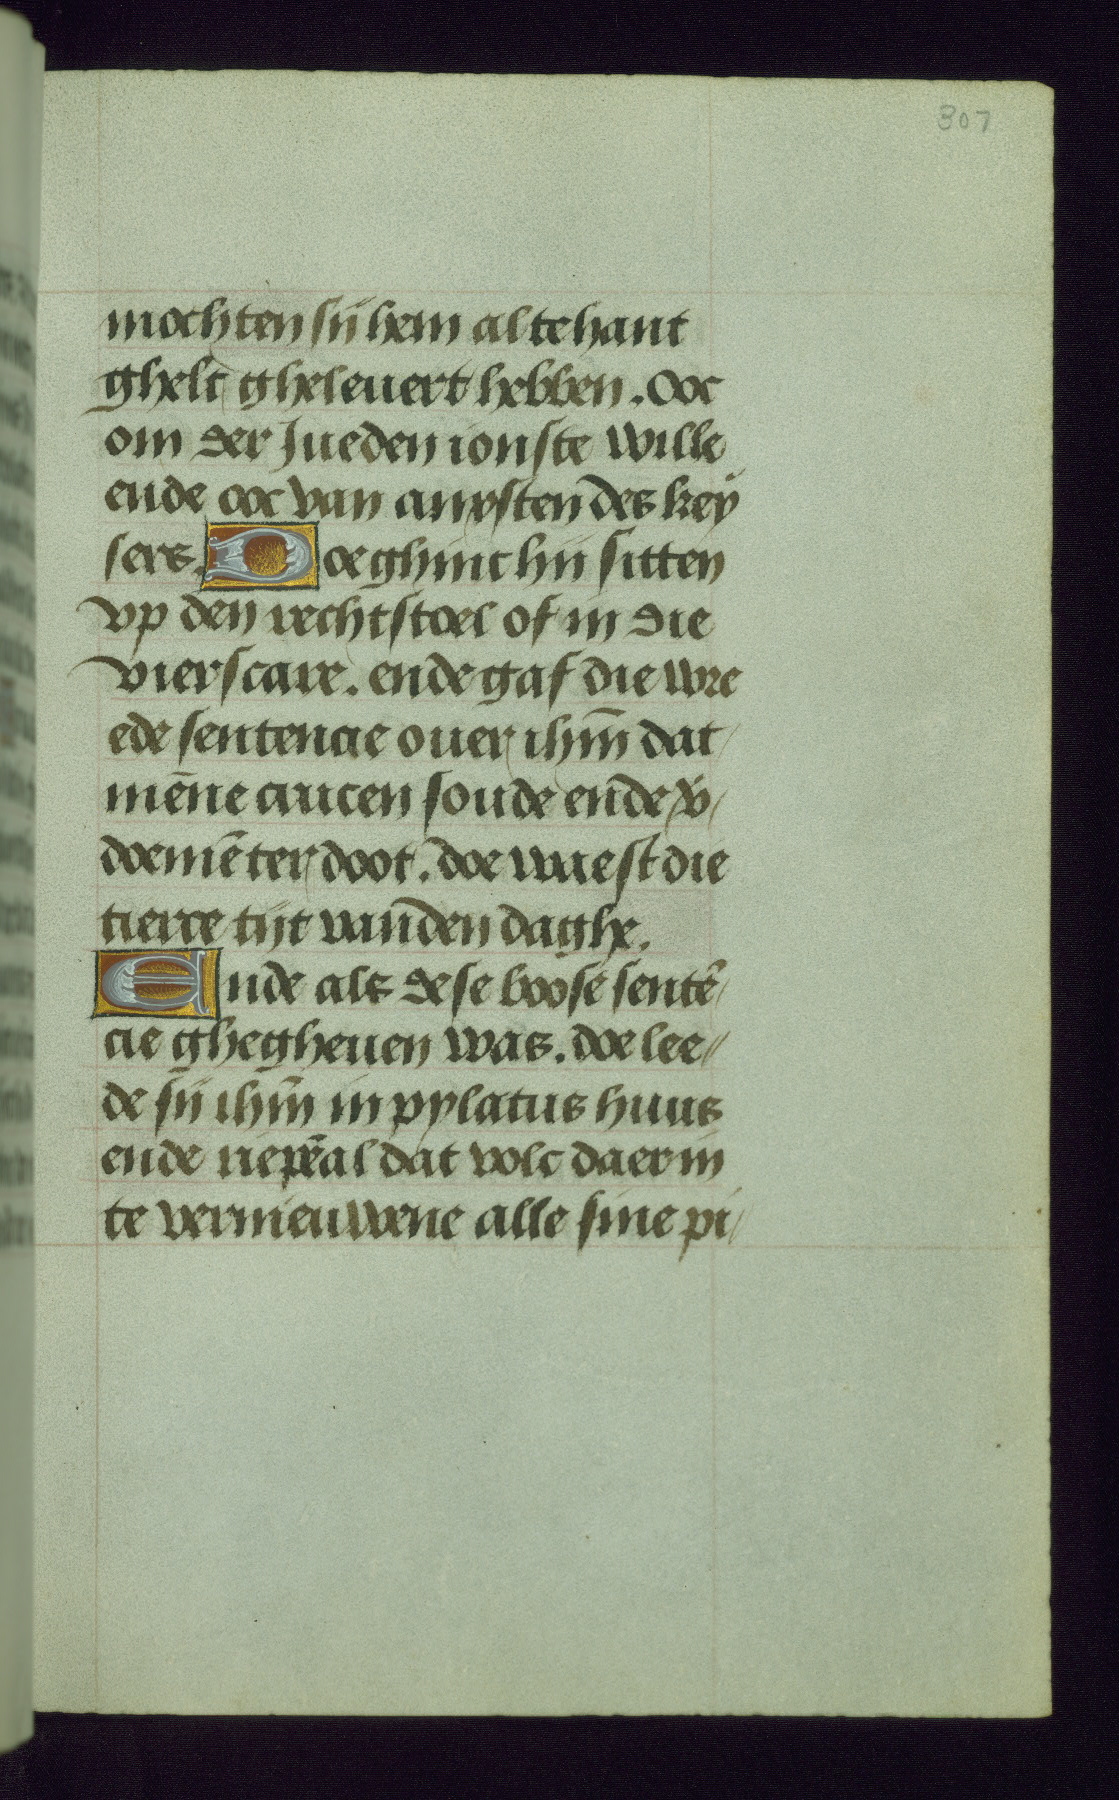 307
mochten sij hem al te hant
ghelt gheleuert hebben. Ooc
om der Jueden ionste wille
ende ooc van anxsten des key
sers. Doe ghinc hij sitten
vp den rechtstoel of in die
vierscare. ende gaf die wre
ede sentencie ouer ihm̄ dat
mēne crucen soude ende v̈
doemē ter doot. doe waest die
tierce tijt vanden daghe.
Ende als dese boose sentē
cie ghegheuen was. doe lee
de sij ihm̄ in pylatus huus
ende riepē al dat volc daer in
te vernieuwene alle sine pi